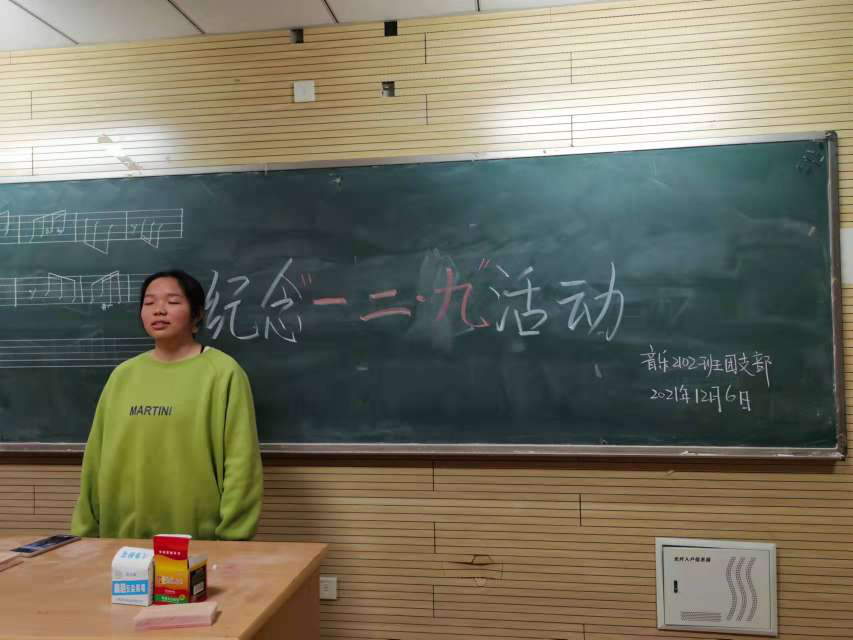 纪念"一二·九"活动
音乐2102班团支部
2021年12月6日
MARTINI
光纤入户信息箱